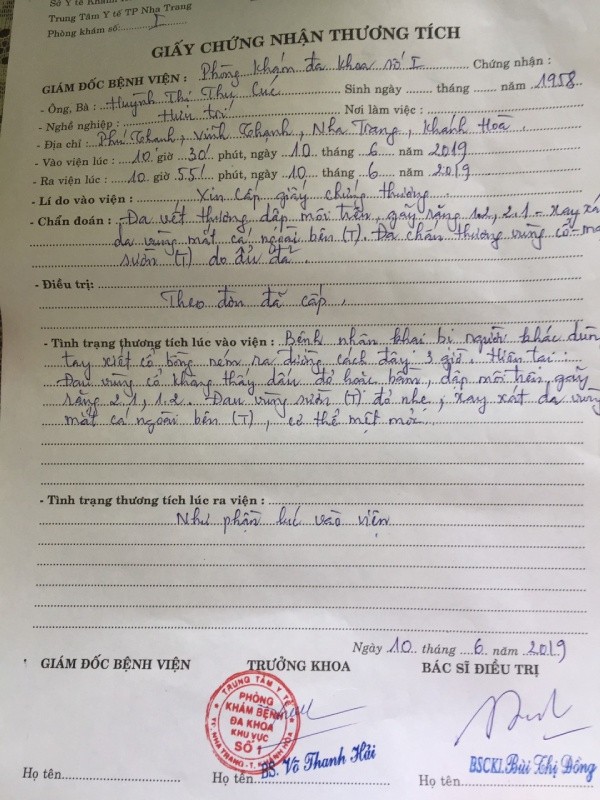 Sở Y tế Khánh
Trung Tâm Y tế TP Nha Trang
Phòng khám số: I
GIẤY CHỨNG NHẬN THƯƠNG TÍCH
GIÁM ĐỐC BỆNH VIỆN : Phòng khám đa khoa số I Chứng nhận :
- Ông, Bà : Huỳnh Thị Thu Cúc Sinh ngày ...... tháng ...... năm 1958
- Nghề nghiệp : Hưu trí Nơi làm việc :
- Địa chỉ : Phú Thạnh, Vĩnh Thạnh, Nha Trang, Khánh Hoà.
- Vào viện lúc : 10 giờ 30 phút, ngày 10 tháng 6 năm 2019
- Ra viện lúc : 10 giờ 55 phút, ngày 10 tháng 6 năm 2019
- Lí do vào viện : Xin cấp giấy chứng thương
- Chẩn đoán : Đa vết thương dập môi trên, gãy răng 1.2, 2.1 - xay xá
da vùng mắt cá ngoài bên (T). Đa chấn thương vùng cổ - mạ
sườn (T) do đả.
- Điều trị:
Theo đơn đã cấp.
- Tình trạng thương tích lúc vào viện : Bệnh nhân khai bị người khác dùn
tay xiết cổ bồng ném ra đường cách đây 3 giờ. Hiện tại :
Đau vùng cổ không thấy dấu đỏ hoặc bầm, dập môi trên, gãy
răng 2.1, 1.2. Đau vùng sườn (T) đỏ nhẹ, xay xát da vùng
mắt cá ngoài bên (T), cơ thể mệt mỏi.
- Tình trạng thương tích lúc ra viện :
Như phần lúc vào viện
Ngày 10 tháng 6 năm 2019
GIÁM ĐỐC BỆNH VIỆN TRƯỞNG KHOA BÁC SĨ ĐIỀU TRỊ
TRUNG TÂM Y TẾ
PHÒNG
KHÁM BỆNH
ĐA KHOA
KHU VỰC
SỐ 1
TP. NHA TRANG - T. KHÁNH HÒA
Họ tên Họ tên BS. Võ Thanh Hải Họ tên BSCKI. Bùi Thị Đông